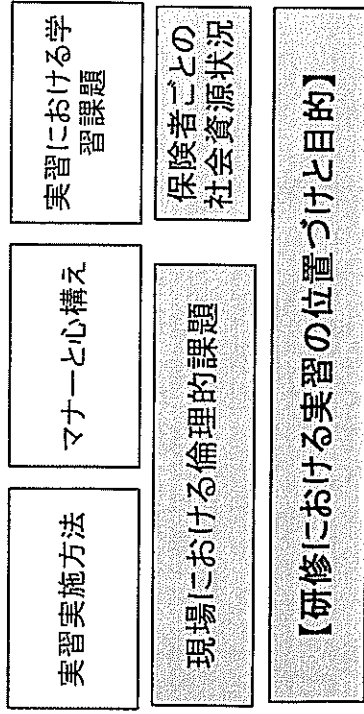 実習実施方法
マナーと心構え
実習における学
習課題
現場における倫理的課題
保険者ごとの
社会資源状況
【研修における実習の位置づけと目的】